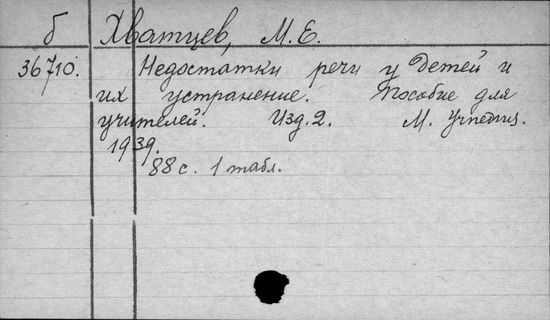 б Хватцев, М.Е.
36710. Недостатки речи у детей и
их устранение. Пособие для
учителей. Изд. 2. М. Учпедгиз.
1939.
88 с. 1 табл.